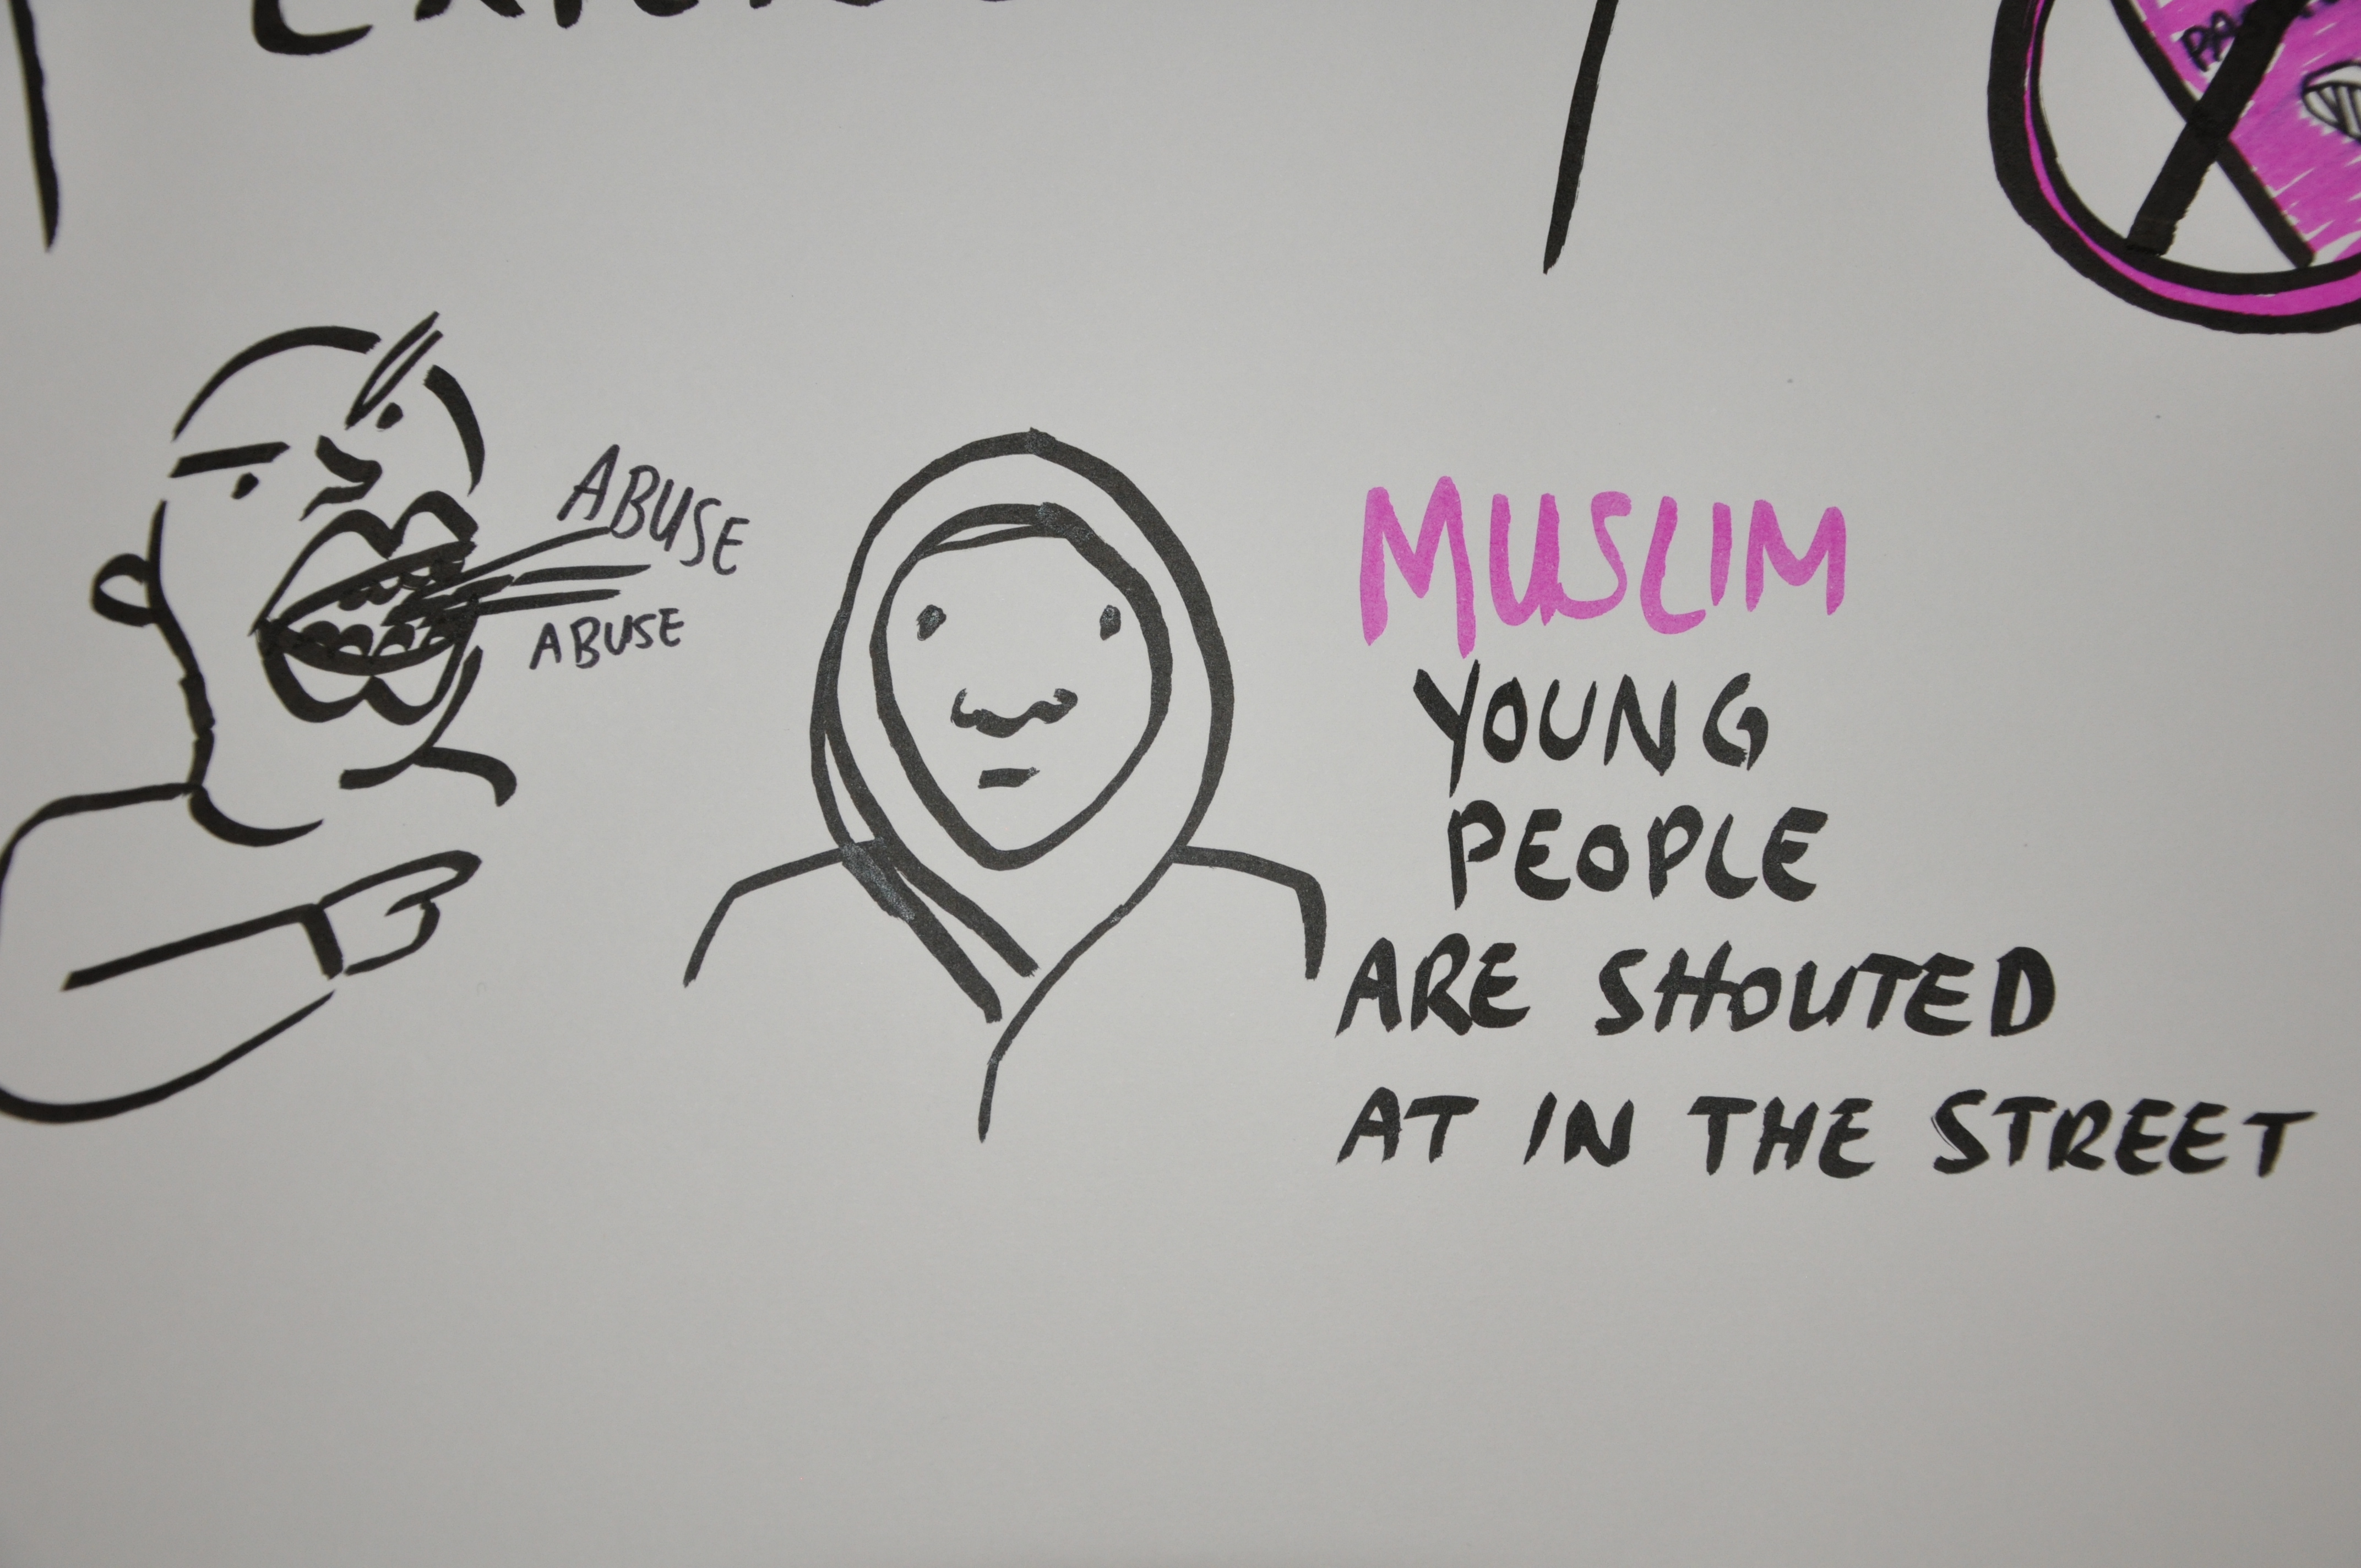 ABUSE
ABUSE
MUSLIM
YOUNG
PEOPLE
ARE SHOUTED
AT IN THE STREET